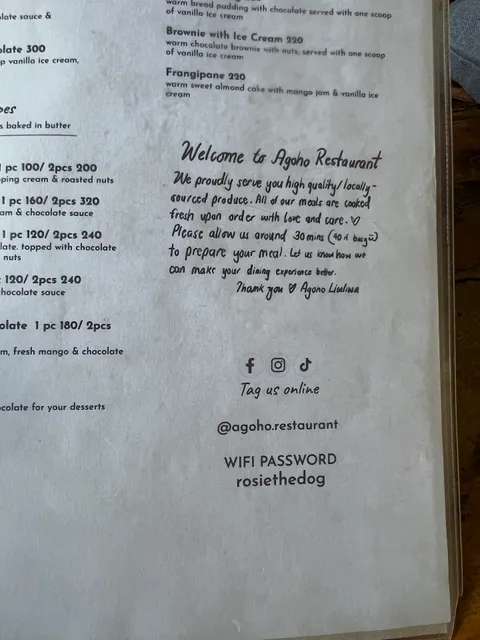 late sauce &
late 300
p vanilla ice cream,
s baked in butter
1 pc 100/ 2pcs 200
ping cream & roasted nuts
1 pc 160/ 2pcs 320
am & chocolate sauce
1 pc 120/ 2pcs 240
late, topped with chocolate
nuts
120/ 2pcs 240
hocolate sauce
olate 1 pc 180/ 2pcs
m, fresh mango & chocolate
colate for your desserts
warm bread pudding with chocolate served with one scoop
of vanilla ice cream
Brownie with Ice Cream 220
warm chocolate brownie with nuts, served with one scoop
of vanilla ice cream
Frangipane 220
warm sweet almond cake with mango jam & vanilla ice
cream
Welcome to Agoho Restaurant
We proudly serve you high quality/locally-
sourced produce. All of our meals are cooked
fresh upon order with love and care. ♡
Please allow us around 30mins (40 if busy ü)
to prepare your meal. Let us know how we
can make your dining experience better.
Thank you ♡ Agoho Liwliwa
Tag us online
@agoho.restaurant
WIFI PASSWORD
rosiethedog